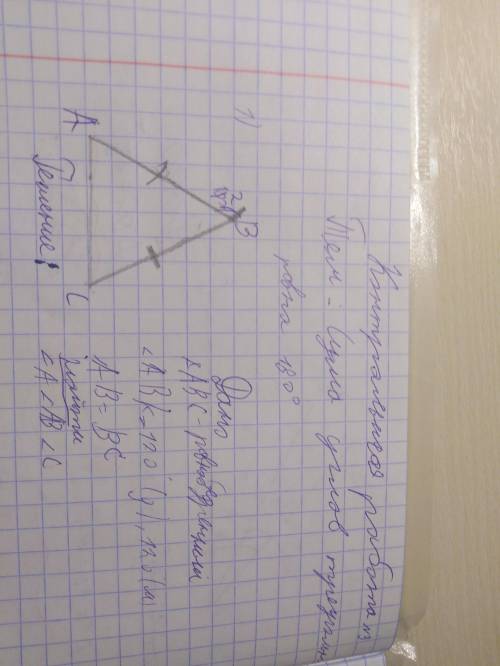 Контрольная работа №3
Тема: Сума углов треуголь
равна 180°
1)
B
A
C
Дано
ABC - равнобедренный
AB = BC
Найти
<A <B <C
Решение: